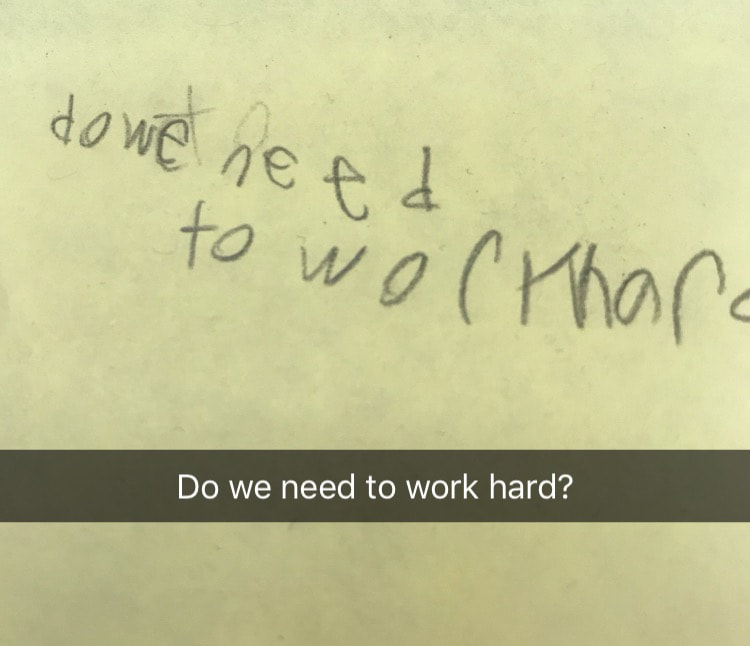 do we need
to work hard
Do we need to work hard?